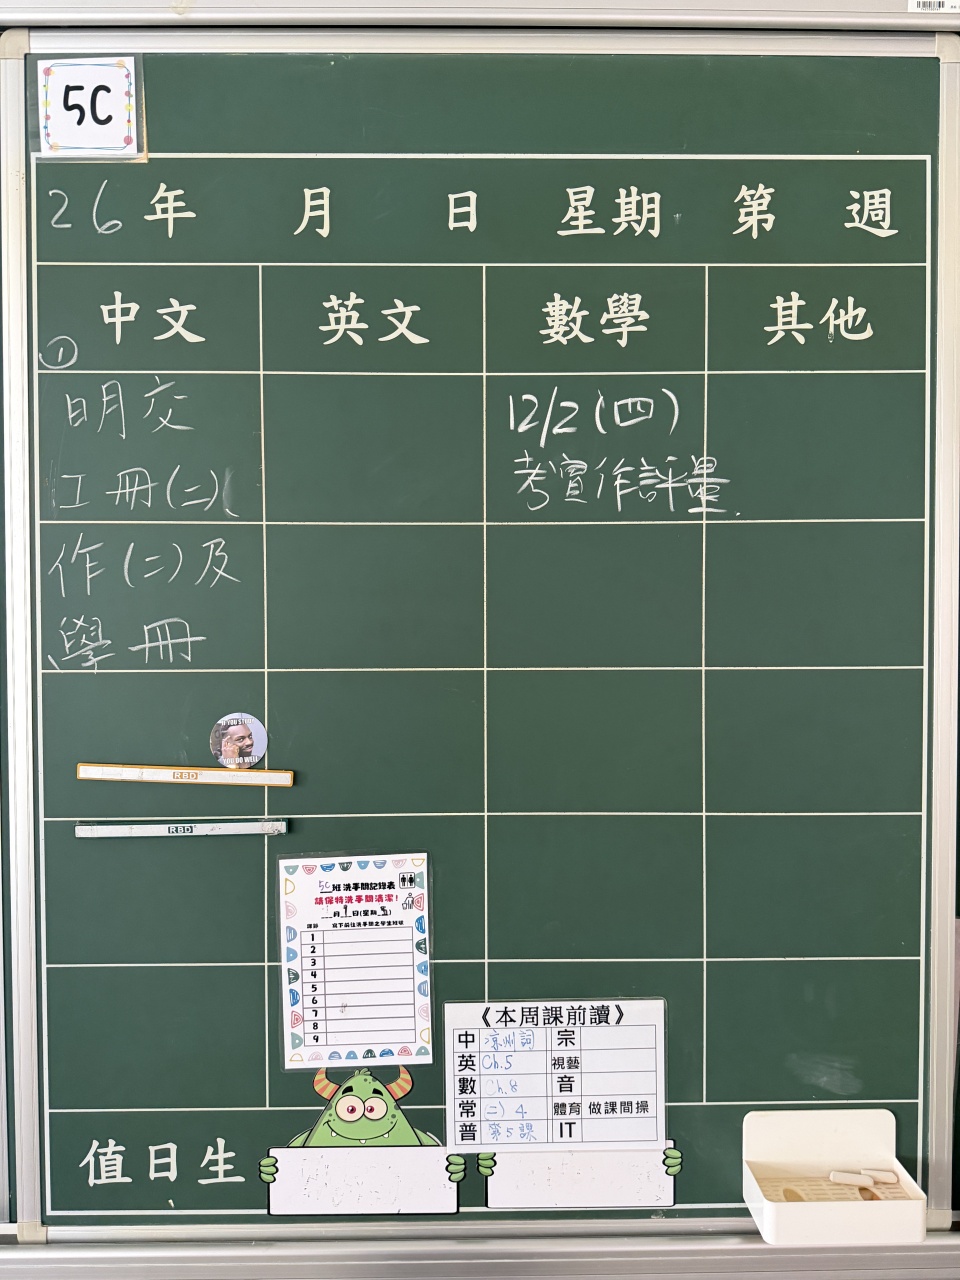 5C
26 年 月 日 星期 第 週
中文 英文 數學 其他
①
明交
工冊(二)、
作(二)及
學冊
12/2(四)
考實作評量.
IF YOU STUDY
YOU DO WELL
RBD
RBD
5C班洗手間記錄表
請保持洗手間清潔！
月 日(星期五)
課節 寫下前往洗手間之學生班號
1
2
3
4
5
6
7
8
9
《本周課前讀》
中 涼州詞 宗
英 Ch.5 視藝
數 Ch.8 音
常 (二) 4 體育 做課間操
普 第5課 IT
值日生